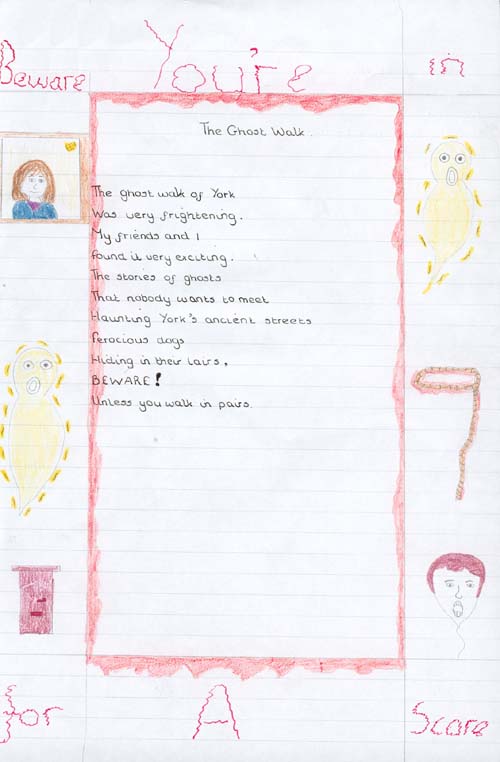 Beware You're in
The Ghost Walk.
The ghost walk of York
Was very frightening.
My friends and I
found it very exciting.
The stories of ghosts
That nobody wants to meet
Haunting York's ancient streets
ferocious dogs
Hiding in their lairs,
BEWARE!
Unless you walk in pairs.
for A Scare